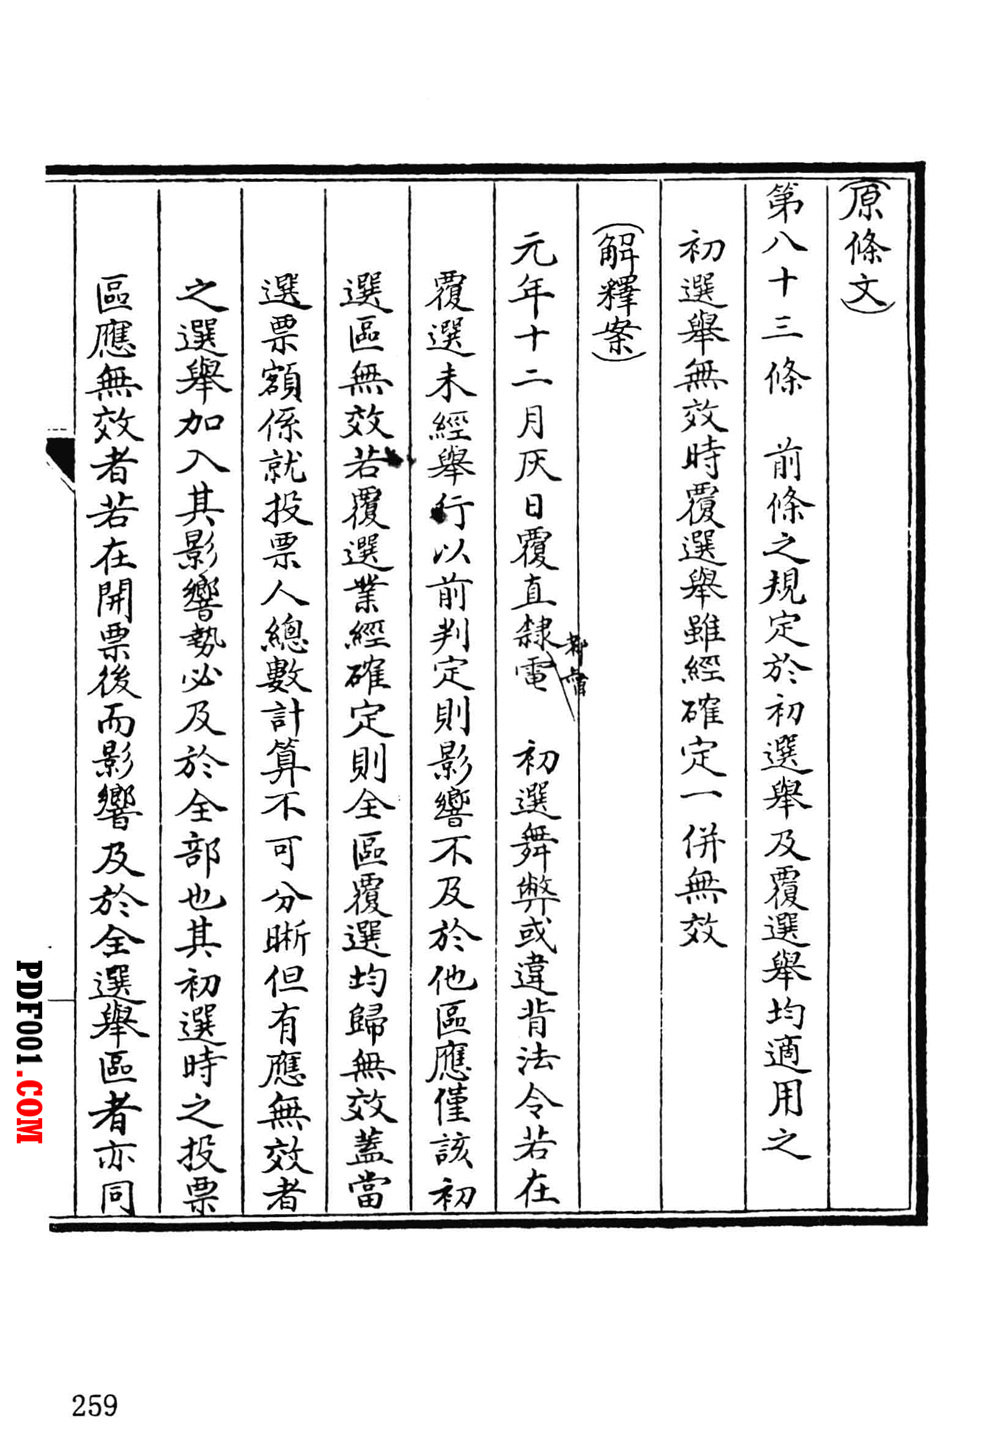 （原條文）
第八十三條　前條之規定於初選舉及覆選舉均適用之
初選舉無效時覆選舉雖經確定一併無效
（解釋案）
元年十二月灰日覆直隸都督電　初選舞弊或違背法令若在
覆選未經舉行以前判定則影響不及於他區應僅該初
選區無效若覆選業經確定則全區覆選均歸無效蓋當
選票額係就投票人總數計算不可分晰但有應無效者
之選舉加入其影響勢必及於全部也其初選時之投票
區應無效者若在開票後而影響及於全選舉區者亦同
PDF001.COM
259